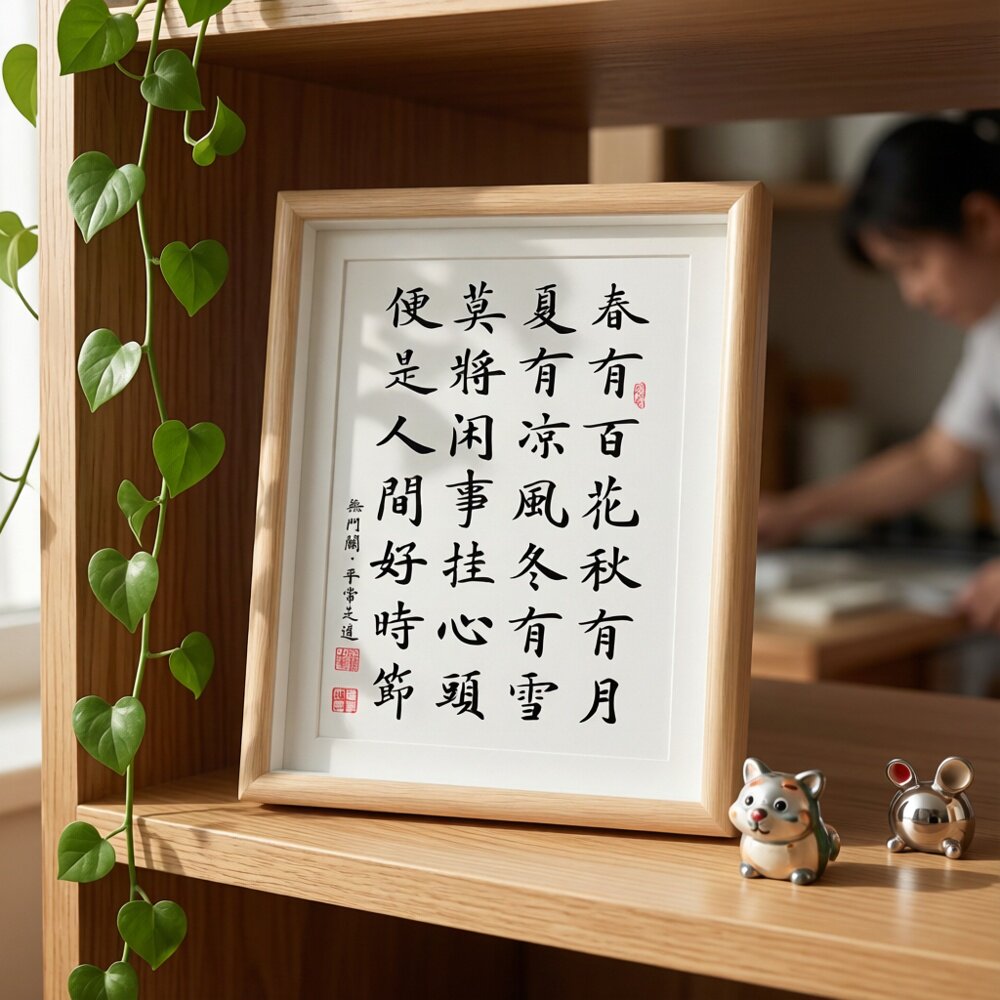 春有百花秋有月
夏有凉風冬有雪
莫將闲事挂心頭
便是人間好時節
無門關·平常是道